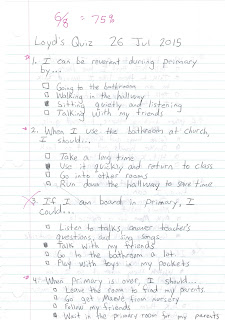 6/8 = 75%
Loyd's Quiz 26 Jul 2015
1. I can be reverent during primary
by...
Going to the bathroom
Walking in the hallway
Sitting quietly and listening
Talking with my friends
2. When I use the bathroom at church,
I should...
Take a long time
Use it quickly and return to class
Go into other rooms
Run down the hallway to save time
3. If I am bored in primary, I
could...
Listen to talks, answer teacher's
questions, and sing songs.
Talk with my friends
Go to the bathroom a lot
Play with toys in my pockets
4. When primary is over, I should...
Leave the room to find my parents.
Go get Maeve from nursery.
Follow my friends
Wait in the primary room for my parents